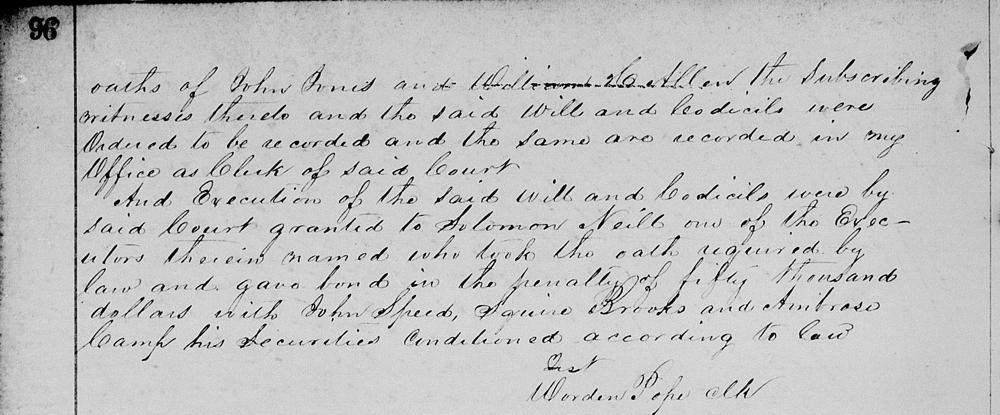 96
oaths of John Jones and William H Allen the Subscribing
witnesses thereto and the said Will and Codicils were
Ordered to be recorded and the same are recorded in my
Office as Clerk of said Court
And Execution of the said Will and Codicils were by
said Court granted to Solomon Neill one of the Exec-
utors therein named who took the oath required by
law and gave bond in the penalty of fifty thousand
dollars with John Speed, Squire Brooks and Ambrose
Camp his Securities Conditioned according to law
Test
Worden Pope clk